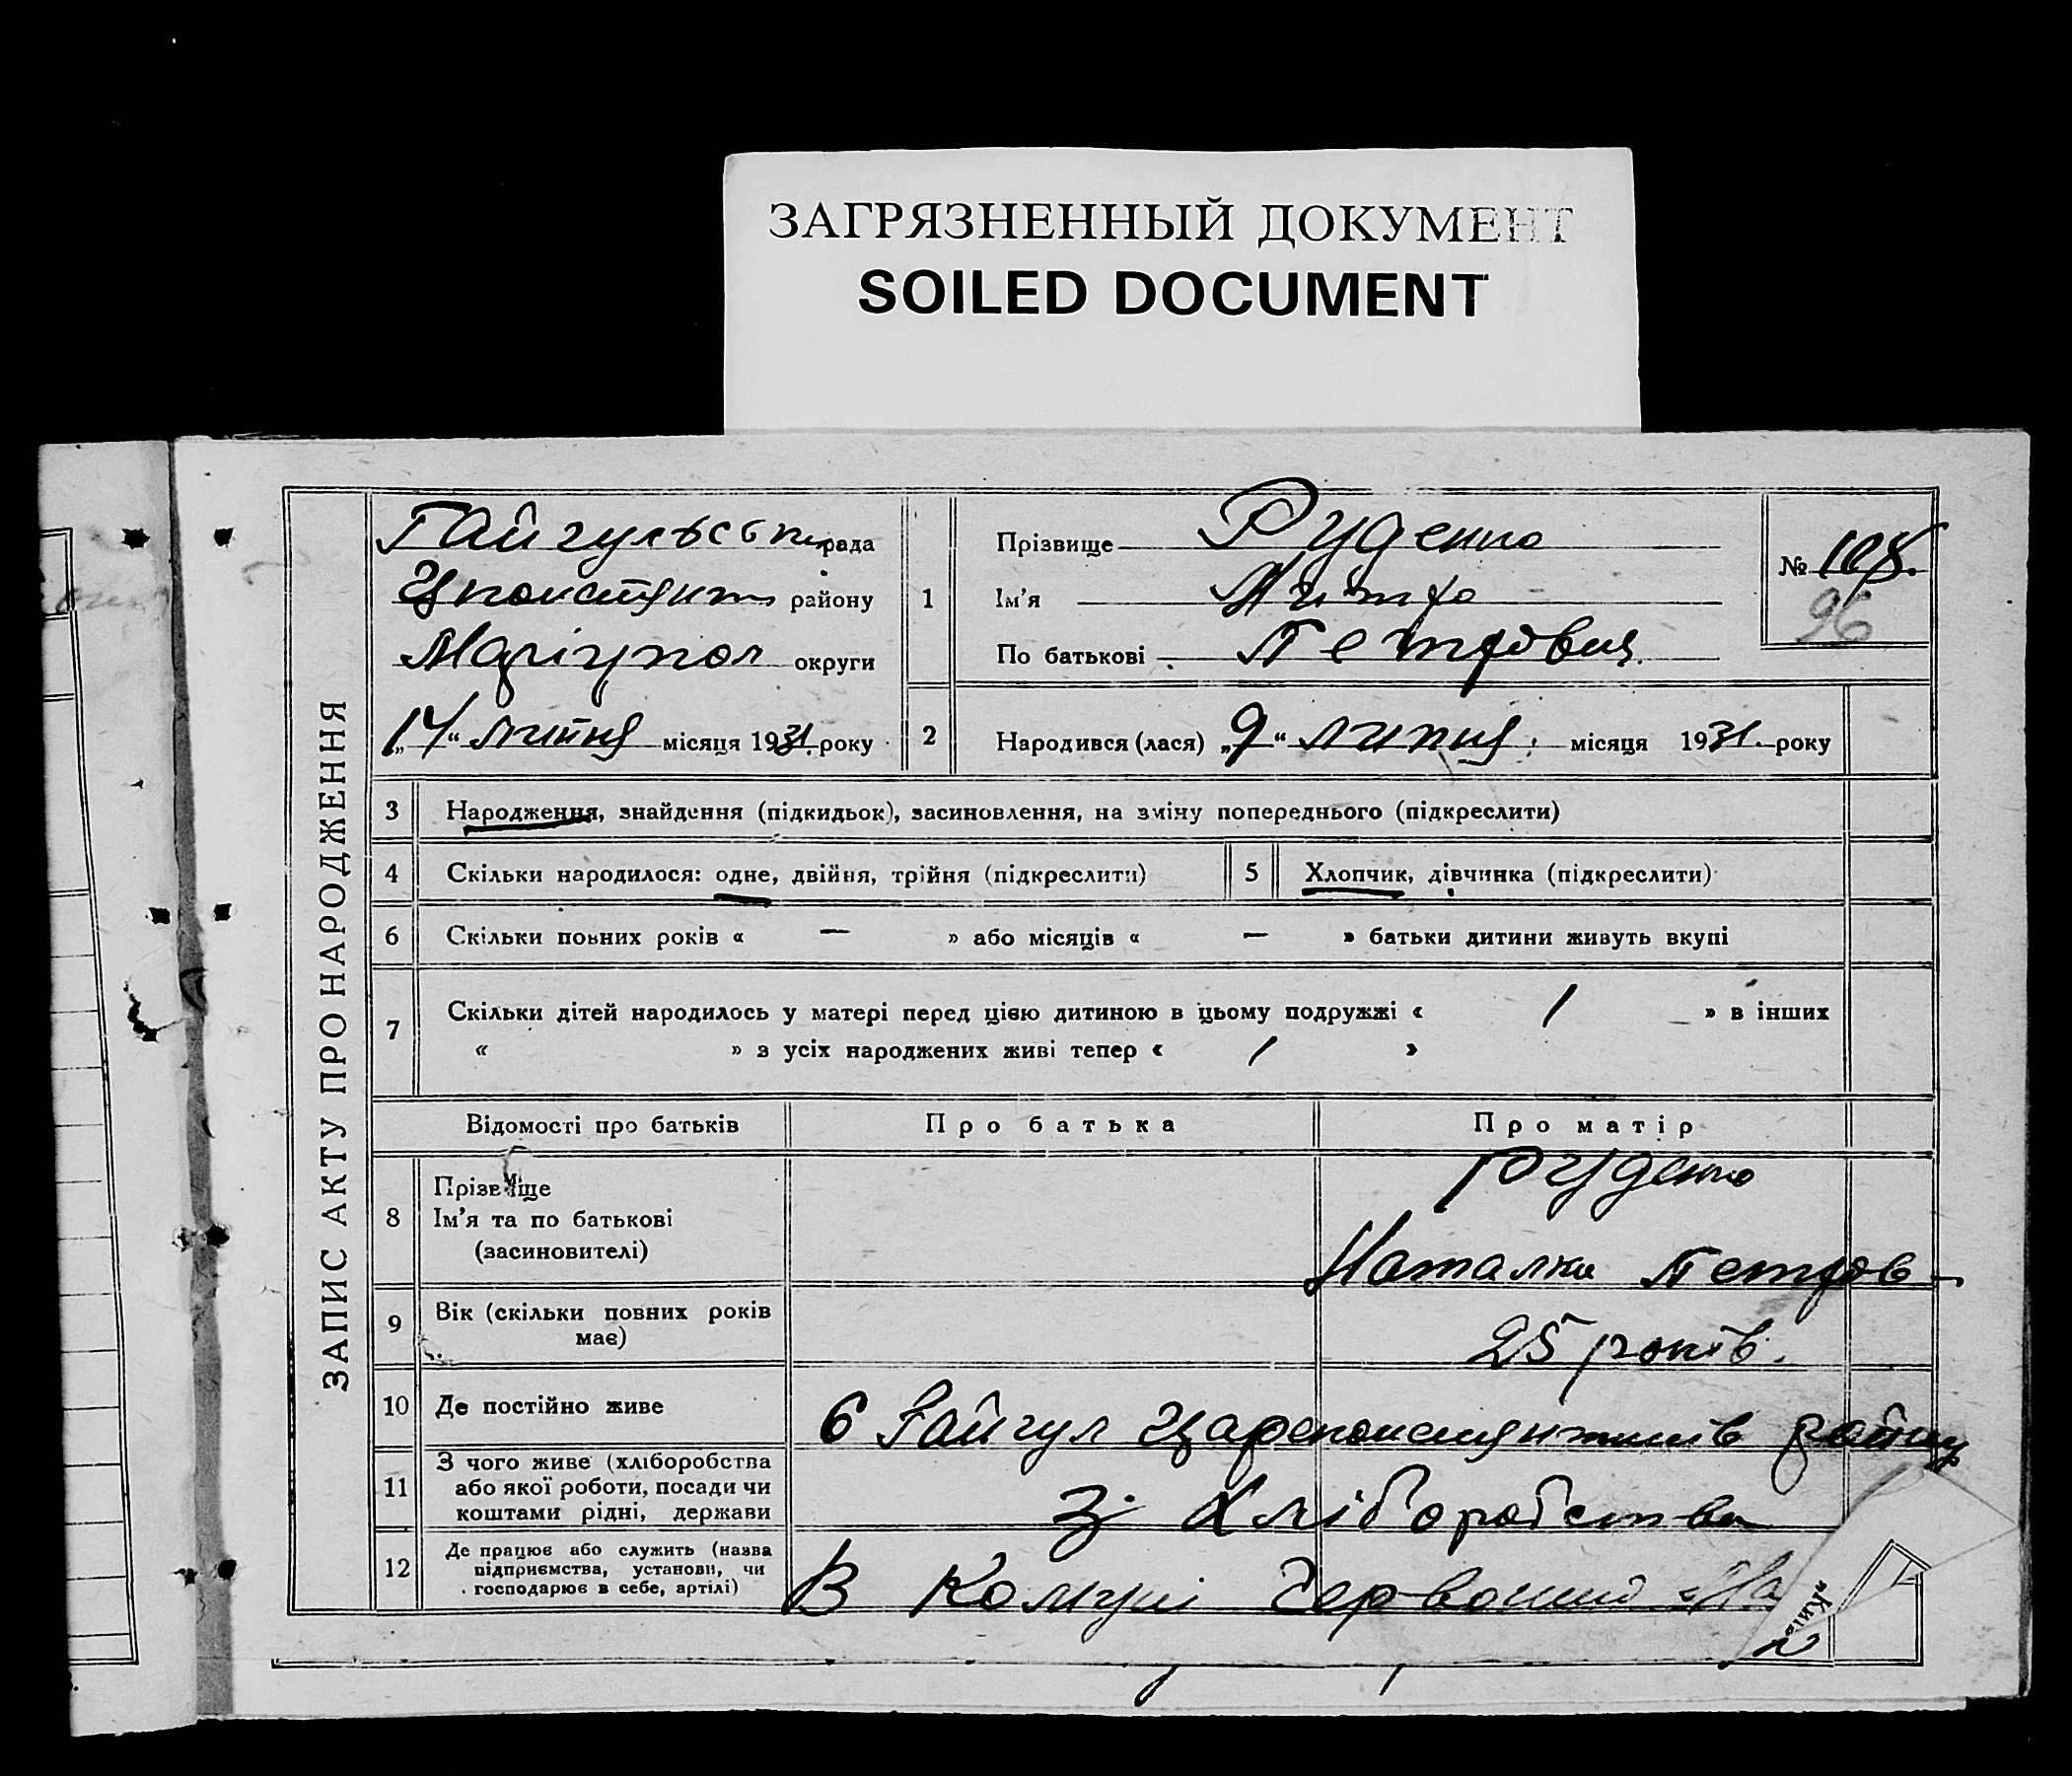 ЗАГРЯЗНЕННЫЙ ДОКУМЕНТ
SOILED DOCUMENT
ЗАПИС АКТУ ПРО НАРОДЖЕННЯ
рада
району
Маріупол округи
„14“ липня місяця 1931. року
1
Прізвище Руденко
Ім'я
По батькові
№ 108.
96
2
Народився (лася) „9“ липня місяця 1931. року
3 Народження, знайдення (підкидьок), засиновлення, на зміну попереднього (підкреслити)
4 Скільки народилося: одне, двійня, трійня (підкреслити)
5 Хлопчик, дівчинка (підкреслити)
6 Скільки повних років « — » або місяців « — » батьки дитини живуть вкупі
7 Скільки дітей народилось у матері перед цією дитиною в цьому подружжі « 1 » в інших
« » з усіх народжених живі тепер « 1 »
Відомості про батьків Про батька Про матір
8 Прізвище
Ім'я та по батькові
(засиновителі)
Руденко
Наталка Петров-
9 Вік (скільки повних років
має)
25 років.
10 Де постійно живе
11 З чого живе (хліборобства
або якої роботи, посади чи
коштами рідні, держави
З Хліборобства
12 Де працює або служить (назва
підприємства, установи, чи
господарює в себе, артілі)
В Комуні